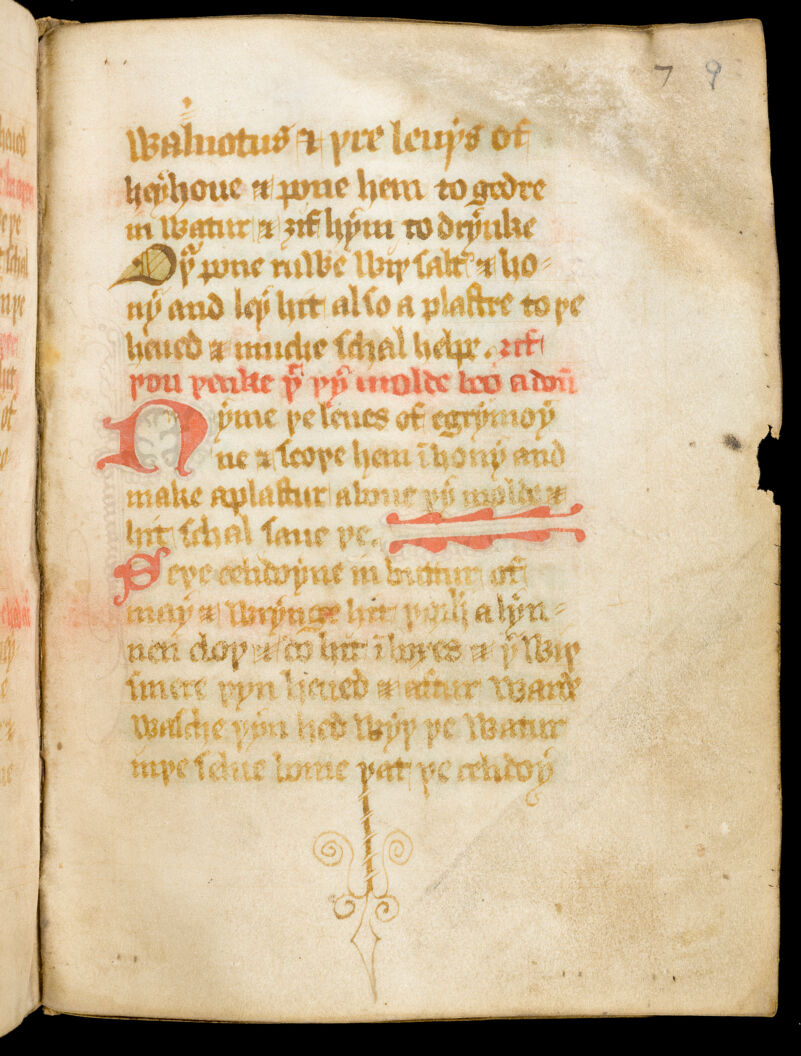 7 9
walnotus & þre leuys of
heyhoue & pone hem to gedre
in watur & ȝif hym to drynke
Oþer pone ruwe wiþ salt & ho-
ny and ley hit also a plastre to þe
heued & muche schal helpe. ȝif
þou þenke þt þy molde beo adoun
Nyme þe leues of egrymoy
ne & seoþe hem ī hony and
make a plastur aboue þy molde &
hit schal saue þe.
Seþe celidoyne in buttur of
may & wrynge hit þorh a lyn-
nen cloþ & do hit ī boxes & þer wiþ
smere þyn heued & aftur warde
wasche þyn hed wyþ þe watur
inþe selue tome þat þe celidoy